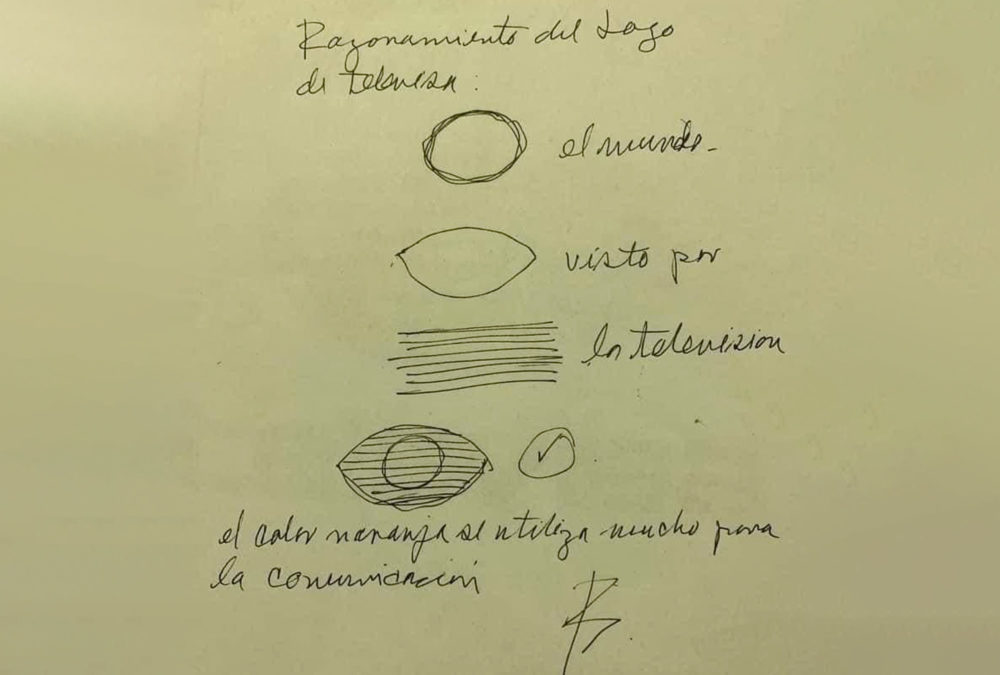 Razonamiento del Logo
de televisa:
el mundo-
visto por
la television
el color naranja se utiliza mucho para
la comunicación